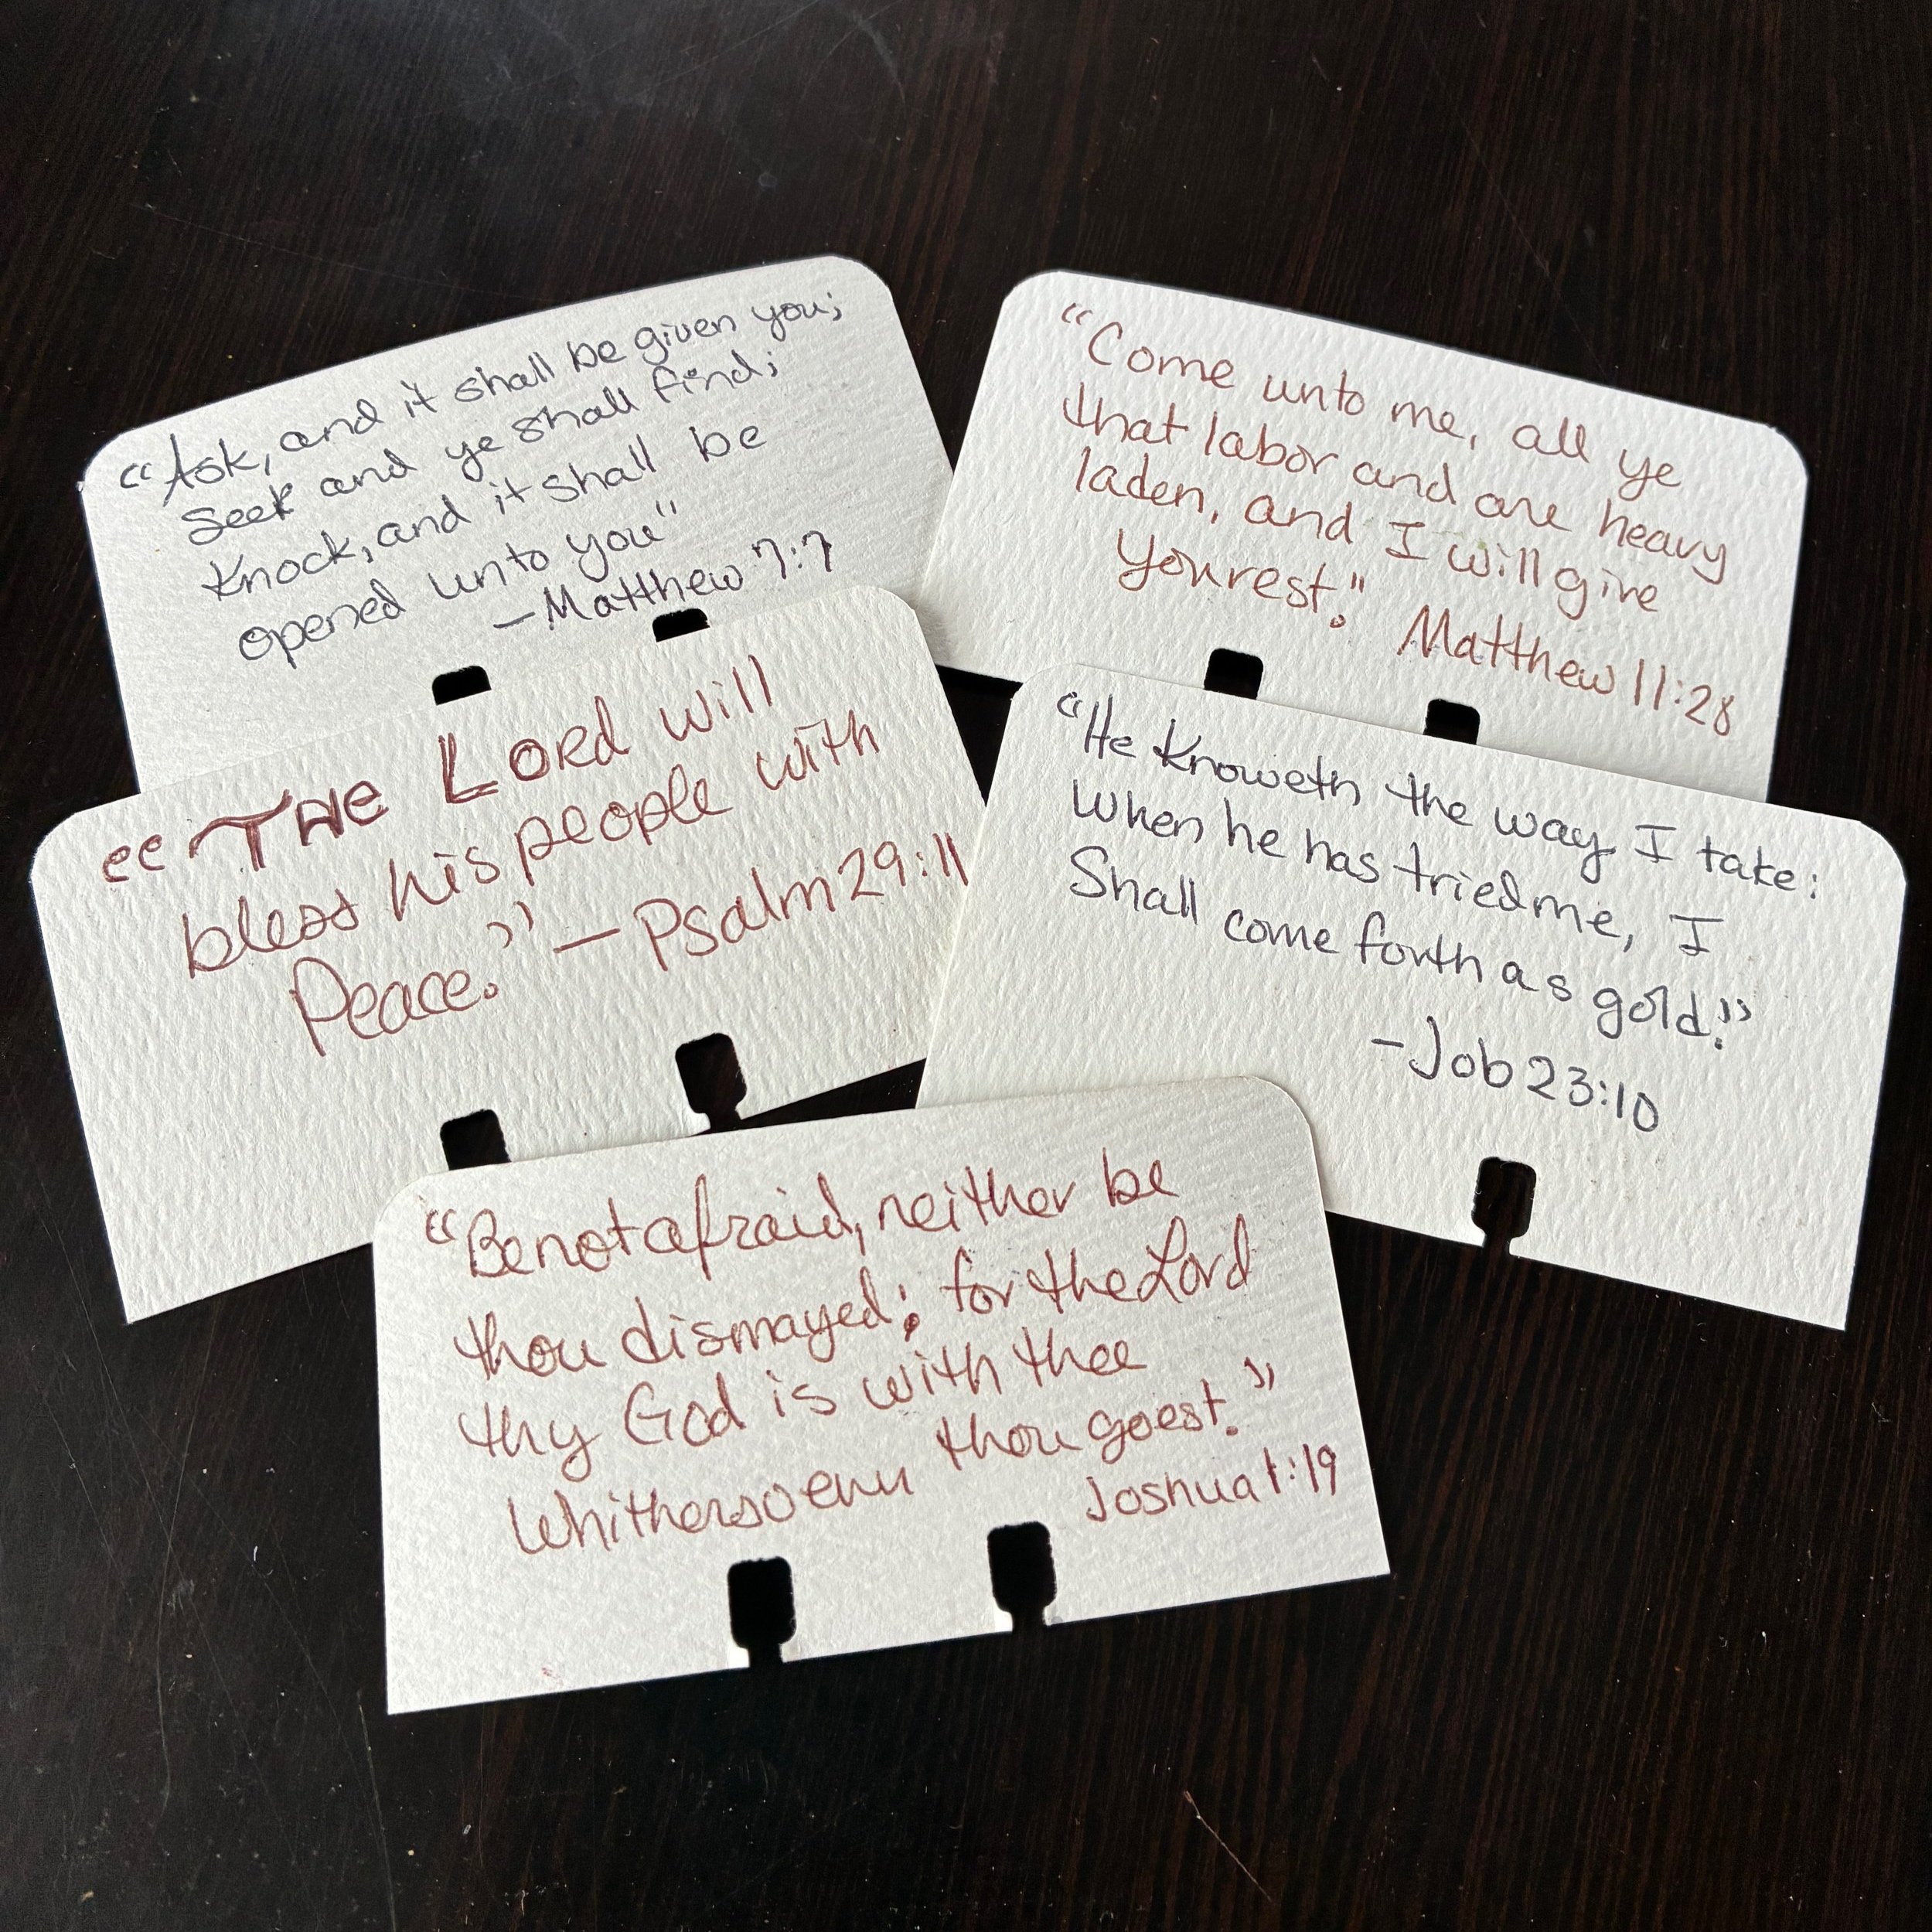 “Ask, and it shall be given you;
Seek and ye shall find;
Knock, and it shall be
opened unto you"
—Matthew 7:7
“Come unto me, all ye
that labor and are heavy
laden, and I will give
you rest."
Matthew 11:28
“THe LORd will
bless his people with
Peace.” — Psalm 29:11
“He Knoweth the way I take:
When he has tried me, I
Shall come forth as gold.”
-Job 23:10
“Be not afraid, neither be
thou dismayed; for the Lord
thy God is with thee
Whithersoever thou goest.”
Joshua 1:19